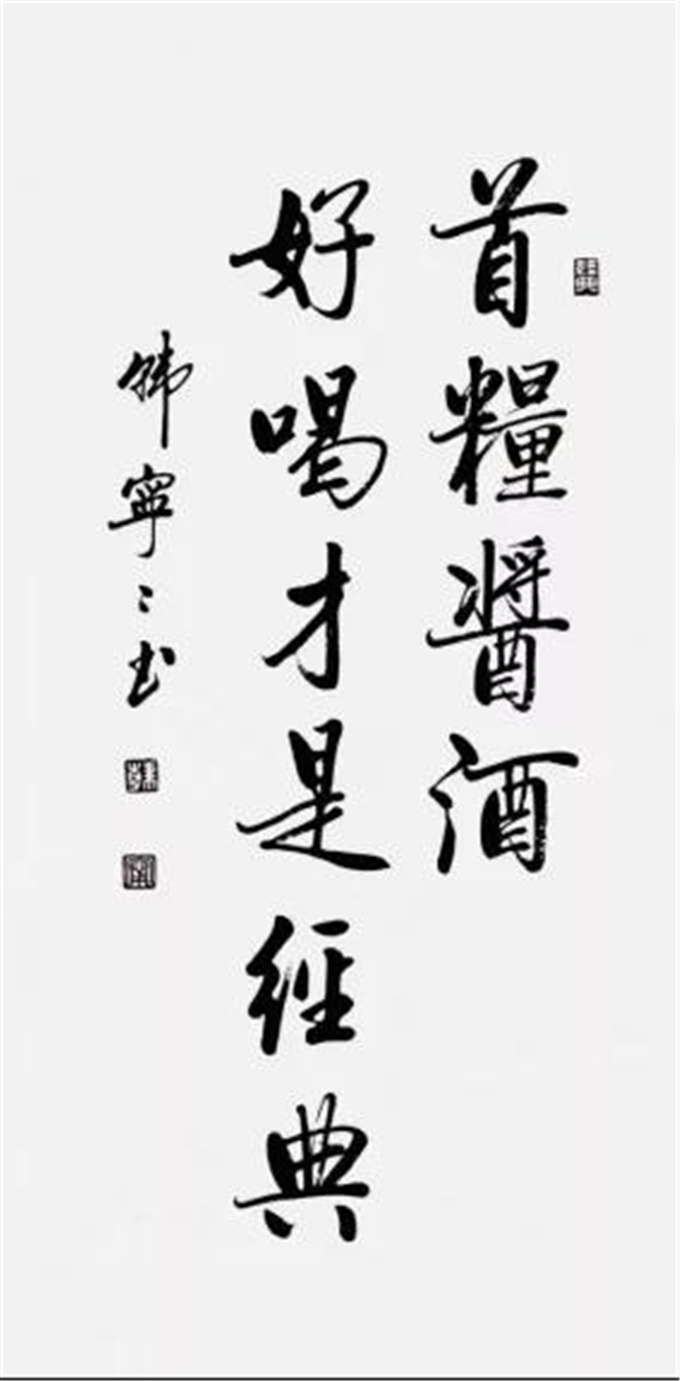 首糧醬酒
好喝才是經典
韩寧寧书